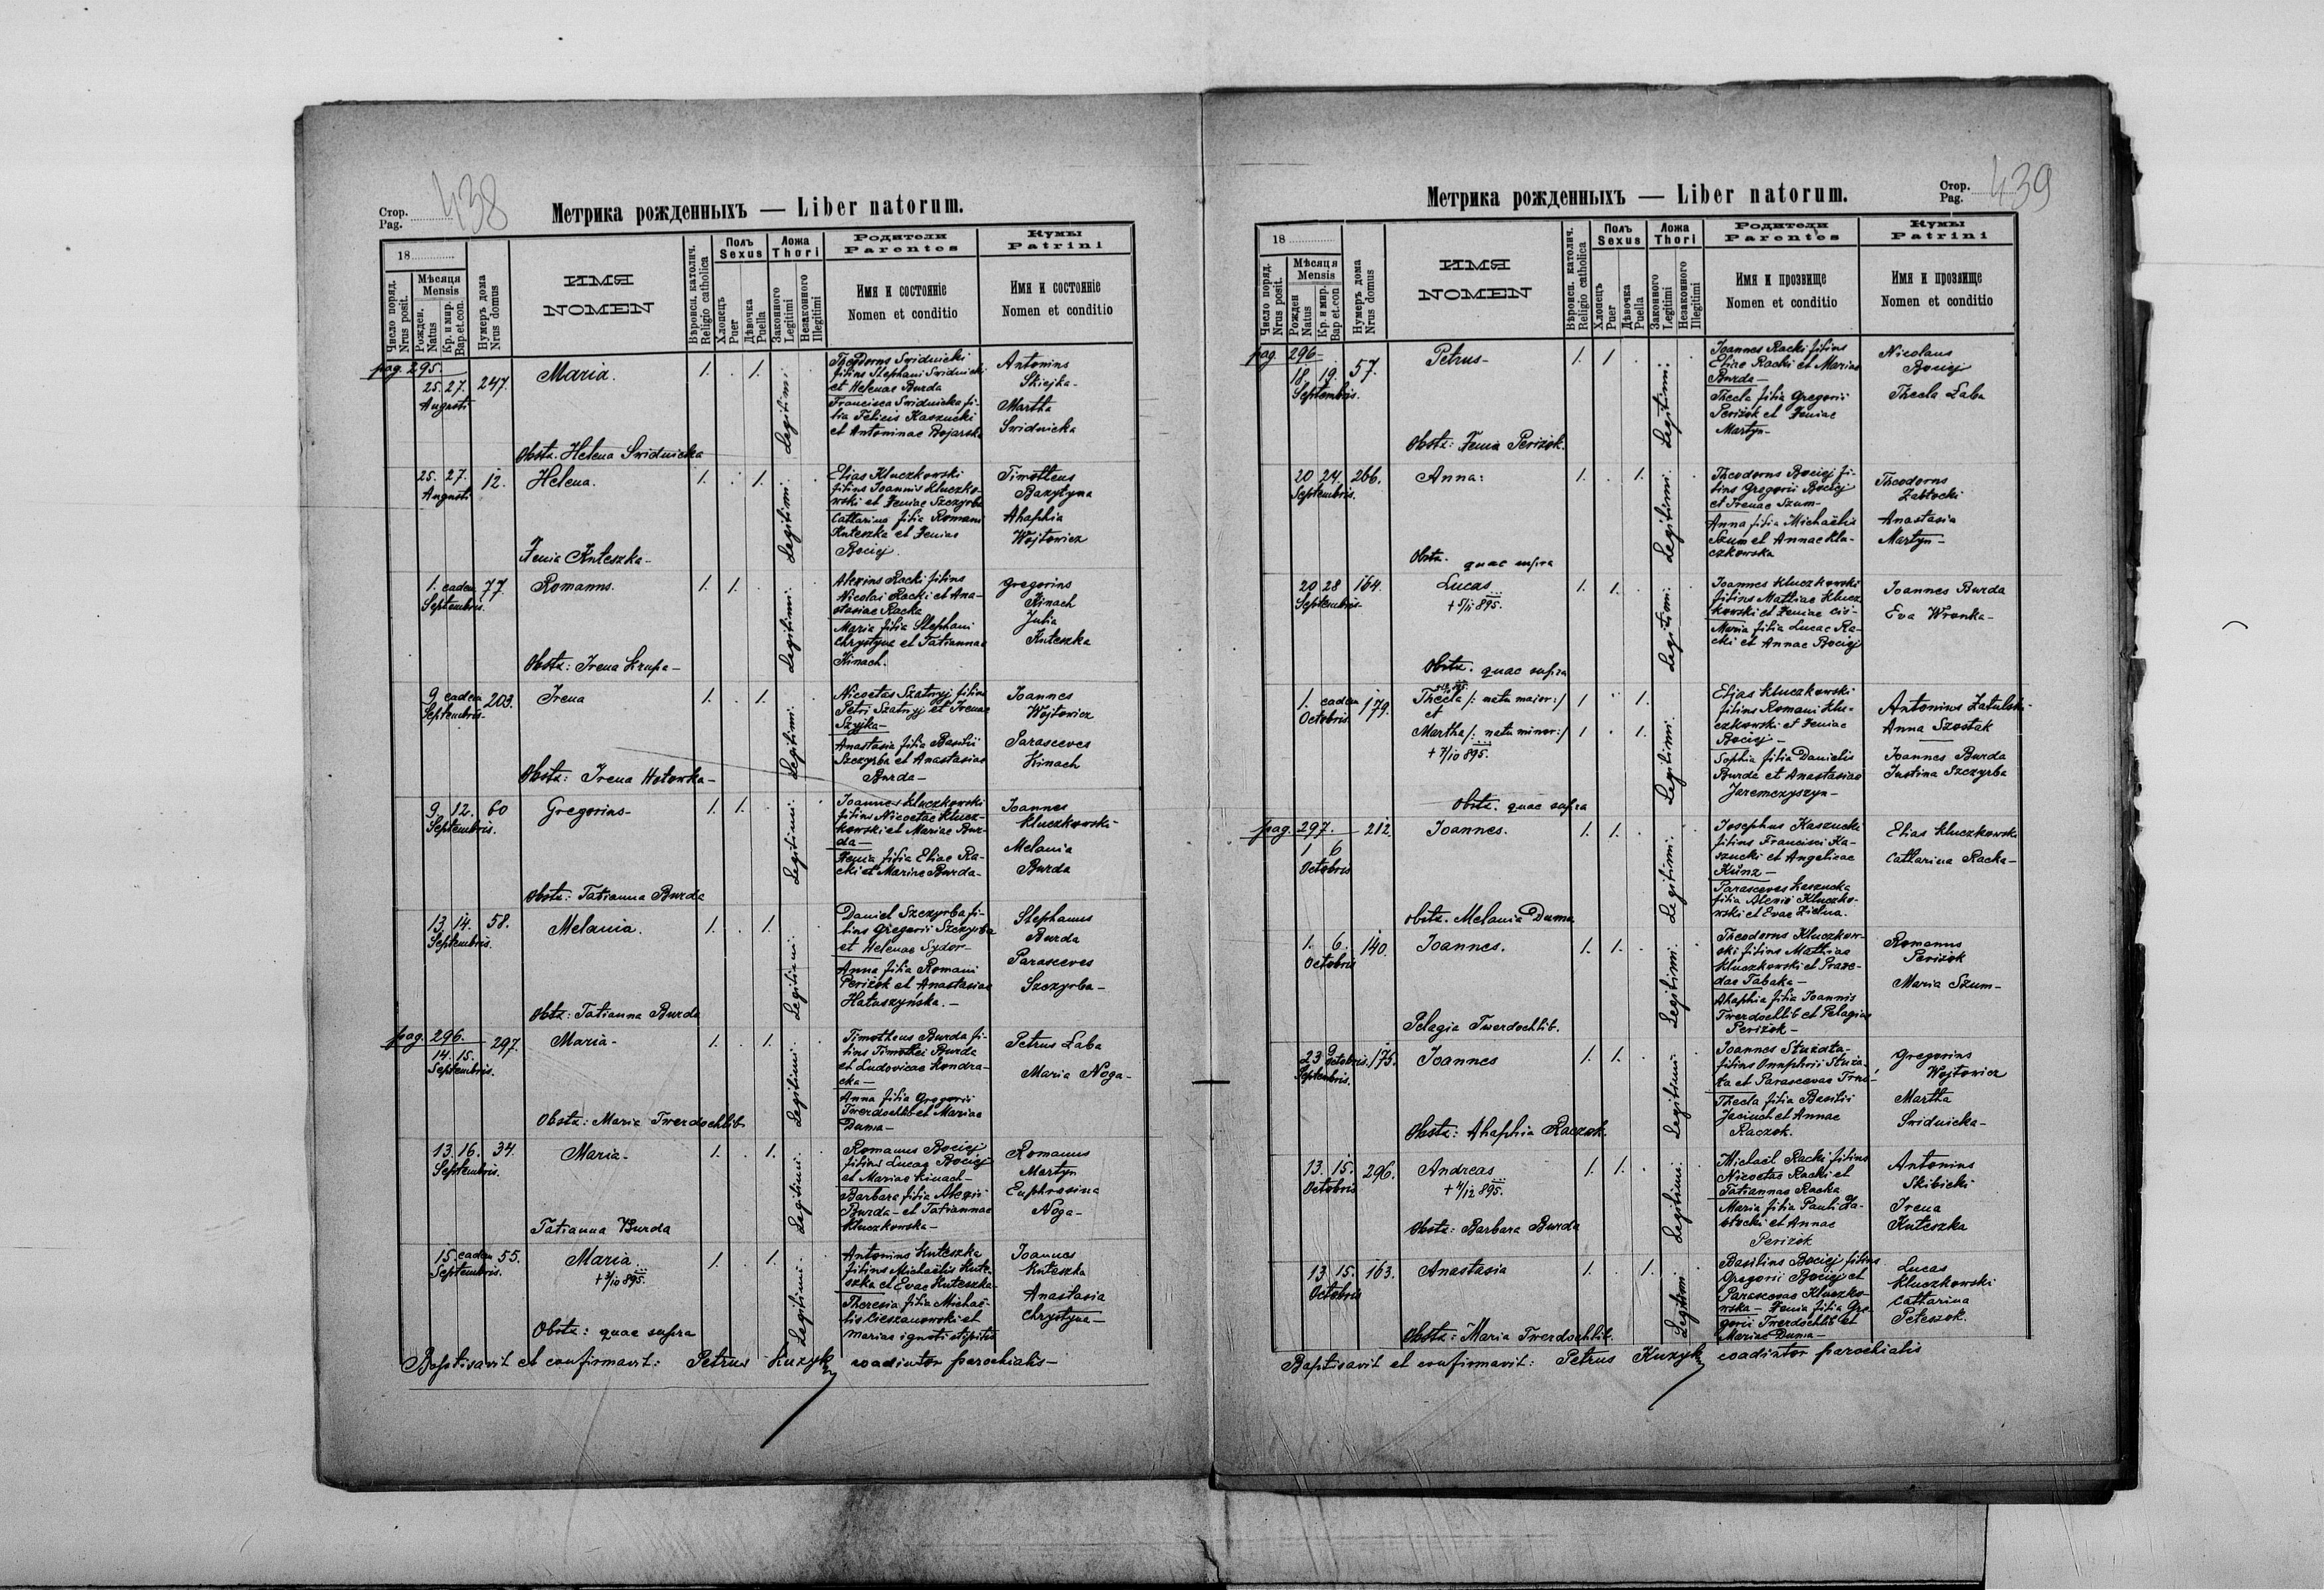 Стор.
Pag. 438
Метрика рожденныхъ — Liber natorum.
18
Число поряд.
Nrus posit.
Мѣсяця
Mensis
Рожден.
Natus
Кр. и мир.
Bap. et con.
Нумеръ дома
Nrus domus
ИМЯ
NOMEN
Вѣроисп. католич.
Religio catholica
Полъ
Sexus
Хлопецъ
Puer
Дѣвочка
Puella
Ложа
Thori
Законного
Legitimi
Незаконного
Illegitimi
Родители
Parentes
Имя и состоянiе
Nomen et conditio
Кумы
Patrini
Имя и состоянiе
Nomen et conditio
pag. 295.
25. 27. 247.
Augusti
Maria.
1. . 1. .
Legitimi.
Theodorus Swidnicki
filius Stephani Swidnicki
et Helenae Burda
Francisca Swidnicka fi-
lia Felicis Kaszucki
et Antoninae Bojarska
Antonius
Skiejka-
Martha
Swidnicka
Obstz. Helena Swidnicka
25. 27. 12.
Augusti
Helena.
1. . 1. .
Legitimi.
Elias Kluczkowski
filius Joannis Kluczko-
wski et Feniae Szczyrba
Catharina filia Romani
Kuteszka et Fenias
Bociej.
Timotheus
Bazylyna
Ahaphia
Wojtowicz
Fenia Kuteszka-
1. eadem 77.
Septembris.
Romanus.
1. 1. .
Legitimi.
Alexius Racki filius
Nicolai Racki et Ana-
stasiae Racka
Maria filia Stephani
Chrystyna et Tatiannae
Kinach.
Gregorius
Kinach
Julia
Kuteszka
Obstz: Irena Krupa-
9 eadem 203.
Septembris.
Irena
1. . 1.
Legitimi.
Nicetas Szatnyj filius
Petri Szatnyj et Irenae
Szyjka-
Anastasia filia Basilii
Szczyrba et Anastasiae
Burda-
Joannes
Wojtowicz
Parasceves
Kinach
Obstz: Irena Hołowka-
9. 12. 60
Septembris.
Gregorius-
1. 1. .
Legitimi.
Joannes Kluczkowski
filius Nicetae Klucz-
kowski et Mariae Bur-
da-
Fenia filia Eliae Ra-
cki et Mariae Burda-
Joannes
Kluczkowski
Melania
Burda
Obstz: Tatianna Burda
13. 14. 58.
Septembris.
Melania.
1. . 1.
Legitimi.
Daniel Szczyrba fi-
lius Gregorii Szczyrba
et Helenae Sydor-
Anna filia Romani
Periżok et Anastasiae
Hałuszyńska.-
Stephanus
Burda
Parasceves
Szczyrba-
Obstz: Tatianna Burda
pag. 296.
14. 15. 297.
Septembris.
Maria-
1. . 1. .
Legitimi.
Timotheus Burda fi-
lius Timothei Burda
et Ludovicae Kondra-
cka-
Anna filia Gregorii
Twerdochlib et Mariae
Duma-
Petrus Łaba
Maria Noga-
Obstz: Maria Twerdochlib
13. 16. 34.
Septembris.
Maria-
1. . 1. .
Legitimi.
Romanus Bociej
filius Lucae Bociej
et Mariae Kinach-
Barbara filia Alexii
Burda- et Tatiannae
Kluczkowska-
Romanus
Martyn
Euphrosina
Noga-
Tatianna Burda
15. eadem 55.
Septembris.
Maria
1. . 1. .
Legitimi.
Antonius Kuteszka
filius Michaëlis Kute-
szka et Evae Kuteszka-
Theresia filia Michaë-
lis Cieszanowski et
Mariae ignoti stipitis
Joannes
Kuteszka
Anastasia
Chrystyna-
Obstz: quae supra
Baptisavit et confirmavit: Petrus Kuzyk coadiutor parochialis-
Стор.
Pag. 439
Метрика рожденныхъ — Liber natorum.
18
Число поряд.
Nrus posit.
Мѣсяця
Mensis
Рожден
Natus
Кр. и мир.
Bap et.con
Нумеръ дома
Nrus domus
ИМЯ
NOMEN
Вѣроисп. католич.
Religio catholica
Полъ
Sexus
Хлопецъ
Puer
Дѣвочка
Puella
Ложа
Thori
Законного
Legitimi
Незаконного
Illegitimi
Родители
Parentes
Имя и прозвище
Nomen et conditio
Кумы
Patrini
Имя и прозвище
Nomen et conditio
pag. 296-
18. 19. 57.
Septembris.
Petrus-
1. 1 .
Legitimi.
Joannes Racki filius
Eliae Racki et Mariae
Burda-
Thecla filia Gregorii
Periżok et Feniae
Martyn-
Nicolaus
Bociej
Thecla Łaba
Obstz: Fenia Periżok.
20 24. 266.
Septembris.
Anna:
1. . 1. .
Legitimi.
Theodorus Bociej fi-
lius Gregorii Bociej
et Irenae Szum-
Anna filia Michaëlis
Szum et Annae Klu-
czkowska
Theodorus
Zabłocki
Anastasia
Martyn-
Obstz. quae supra
20 28 164.
Septembris.
Lucas
+ 5/11 895.
1. 1. .
Legitimi.
Joannes Kluczkowski
filius Mathiae Klucz
kowski et Feniae Ciś-
Maria filia Lucae Ra-
cki et Annae Bociej
Joannes Burda
Eva Wronka-
Obstz. quae supra
1. eadem 179.
Octobris.
Thecla /: natu maior:/ 1 . 1.
et
Martha /: natu minor:/ 1 . 1.
+ 7/10 895.
Legitimi.
Elias Kluczkowski
filius Romani Klu-
czkowski et Feniae
Bociej-
Sophia filia Danielis
Burda et Anastasiae
Jaremczyszyn-
Antonius Zatulski-
Anna Szostak
Joannes Burda
Justina Szczyrba
Obstz. quae supra
pag. 297. 212.
1 6
Octobris
Joannes.
1. 1. .
Legitimi.
Josephus Kaszucki
filius Francisci Ka-
szucki et Angelicae
Künz-
Parasceves Kaszucka
filia Alexii Kluczko-
wski et Evae Zielna.
Elias Kluczkowski
Catharina Racka-
Obstz. Melania Duma
1. 6. 140.
Octobris
Joannes.
1. 1. .
Legitimi.
Theodorus Kluczkow-
ski filius Mathiae
Kluczkowski et Praxe-
dae Tabaka-
Ahaphia filia Joannis
Twerdochlib et Pelagiae
Periżok-
Romanus
Periżok
Maria Szum-
Pelagia Twerdochlib.
23 9 Octobris. 175.
Septembris.
Joannes
1. 1. .
Legitimi.
Joannes
filius Onuphrii
Thecla filia Basilii
Jaciuch et Annae
Raczok.
Gregorius
Wojtowicz
Martha
Swidnicka-
Obstz: Ahaphia Raczok.
13. 15. 296.
Octobris
Andreas
+ 4/12 895.
1. 1. .
Legitimi.
Michaël Racki filius
Nicetae Racki et
Tatiannae Racka
Maria filia Pauli
et Annae
Periżok
Antonius
Skibicki
Irena
Kuteszka
Obstz: Barbara Burda
13 15. 163.
Octobris
Anastasia
1. . 1. .
Legitimi.
Basilius Bociej filius
Gregorii Bociej et
Parascevae Kluczko-
wska - Fenia filia Gre-
gorii Twerdochlib et
Mariae Duma-
Lucas
Kluczkowski
Catharina
Peteszok.
Obstz: Maria Twerdochlib.
Baptisavit et confirmavit: Petrus Kuzyk coadiutor parochialis